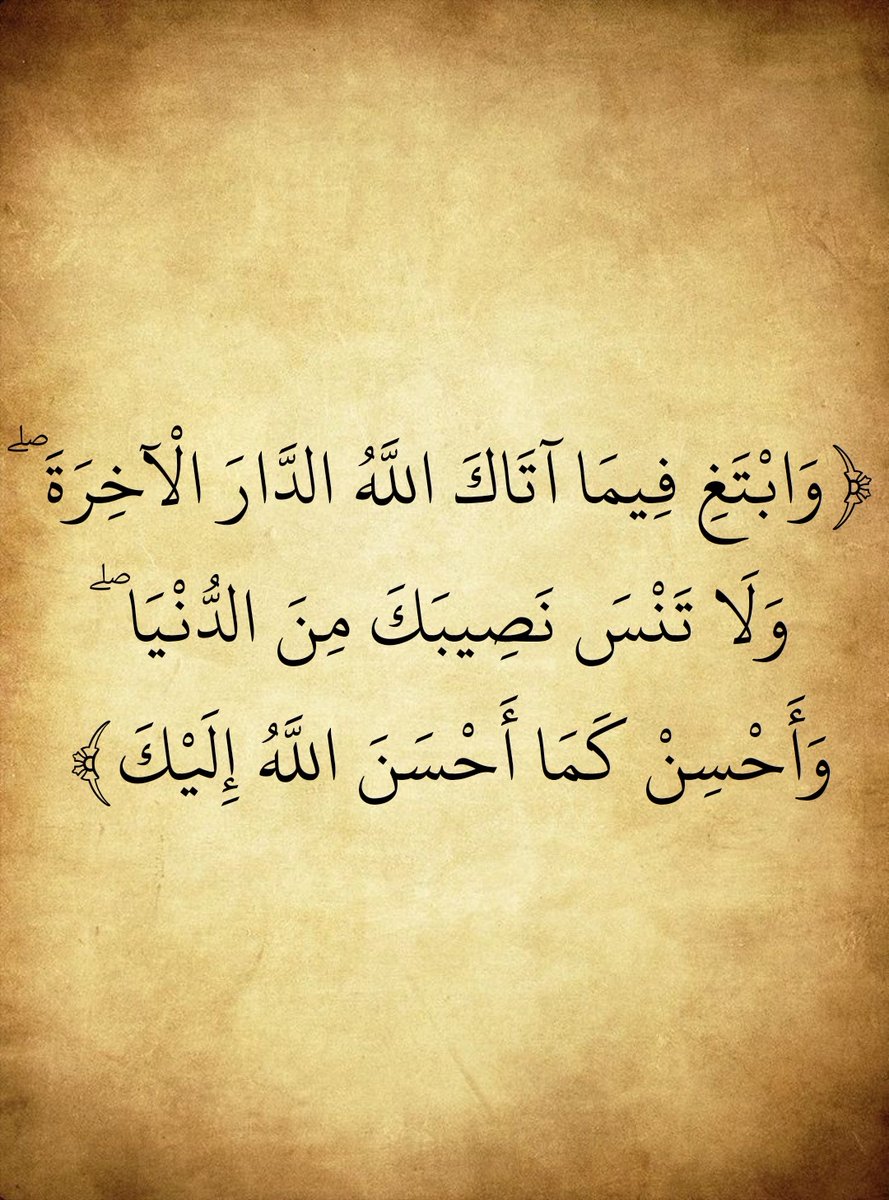 ﴿ وَابْتَغِ فِيمَا آتَاكَ اللَّهُ الدَّارَ الْآخِرَةَ ۖ
وَلَا تَنْسَ نَصِيبَكَ مِنَ الدُّنْيَا ۖ
وَأَحْسِنْ كَمَا أَحْسَنَ اللَّهُ إِلَيْكَ ﴾